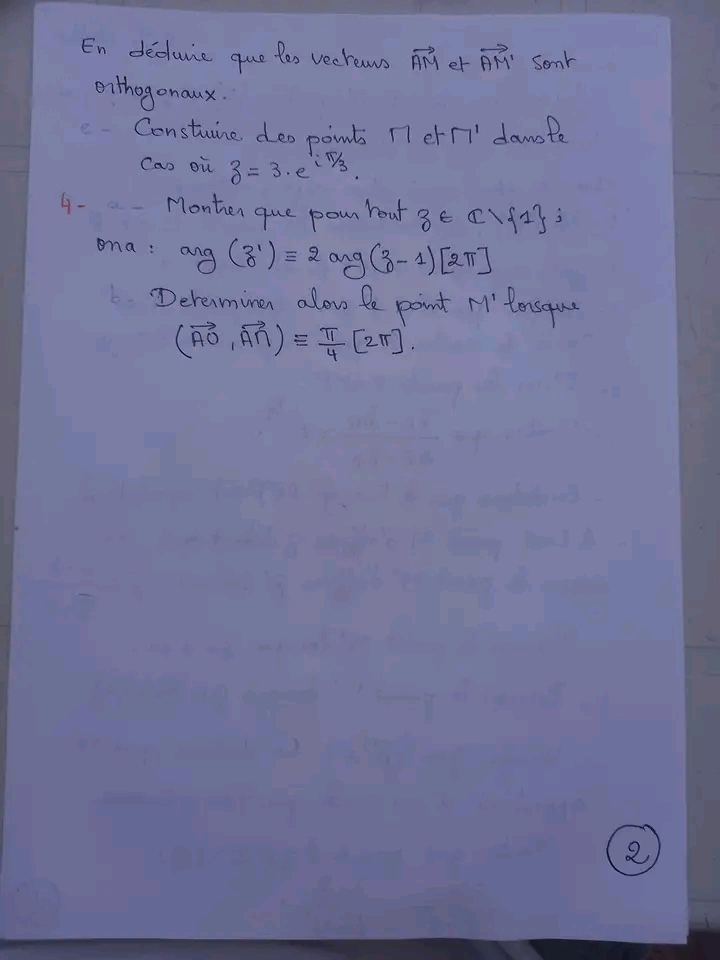 En déduire que les vecteurs $\overrightarrow{AM}$ et $\overrightarrow{AM'}$ sont
orthogonaux.
e - Construire des points M et M' dans le
cas où $z = 3 \cdot e^{i\pi/3}$.
4 - a - Montrer que pour tout $z \in \mathbb{C} \setminus \{1\}$ ;
on a : $\arg(z') \equiv 2\arg(z-1)[2\pi]$
b - Determiner alors le point M' lorsque
$(\overrightarrow{AO}, \overrightarrow{AM}) \equiv \frac{\pi}{4}[2\pi]$.
2